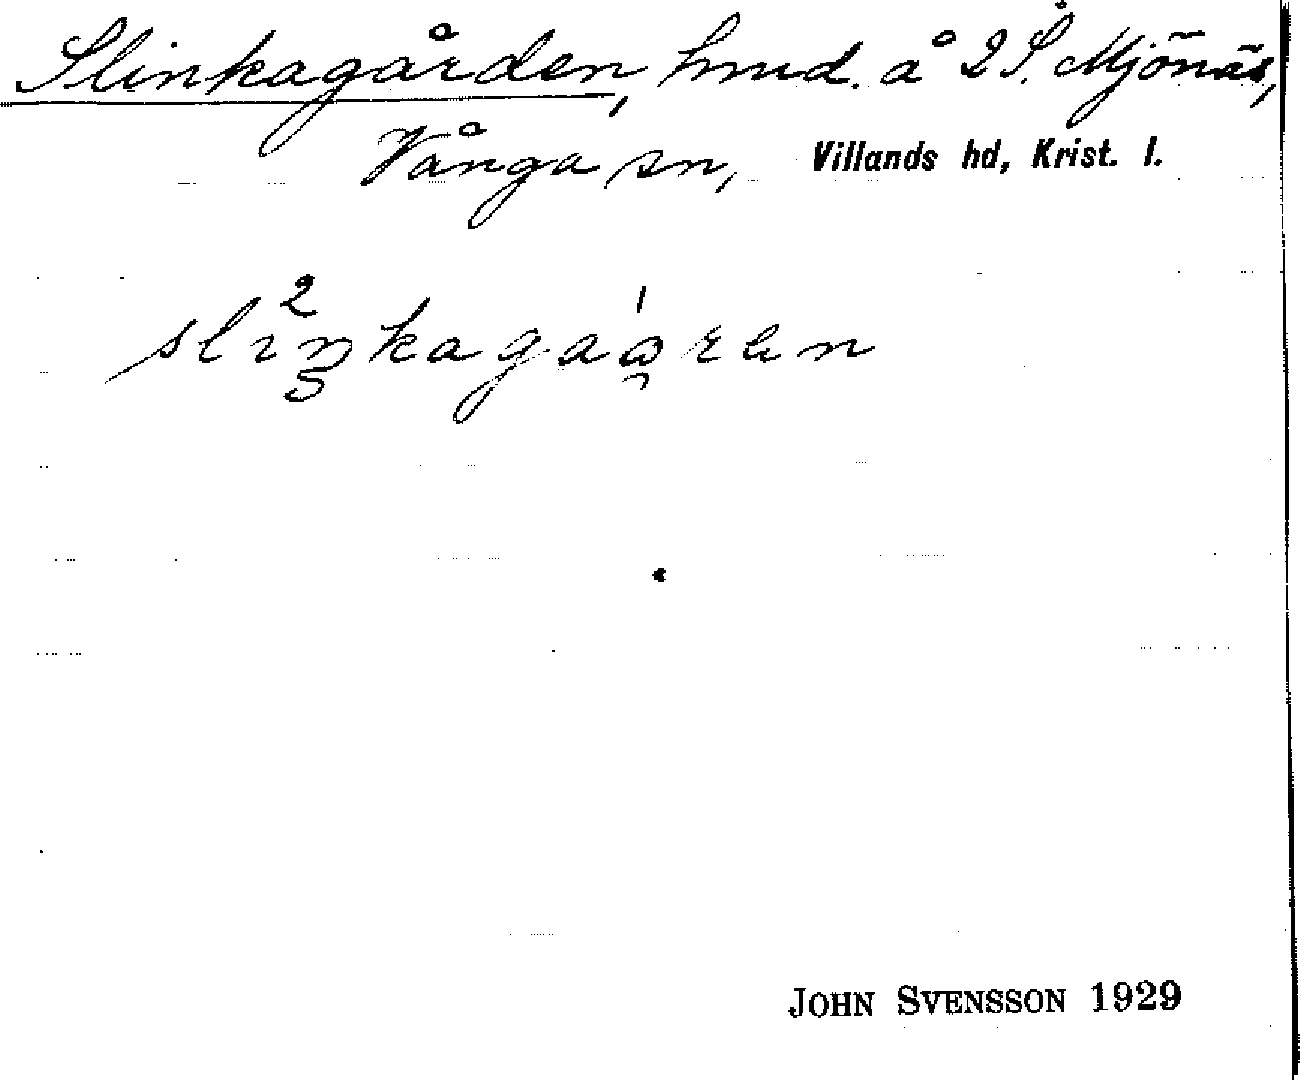 Slinkagården, hmd. å 2 S. Mjönäs,
Vånga sn, Villands hd, Krist. l.
JOHN SVENSSON 1929